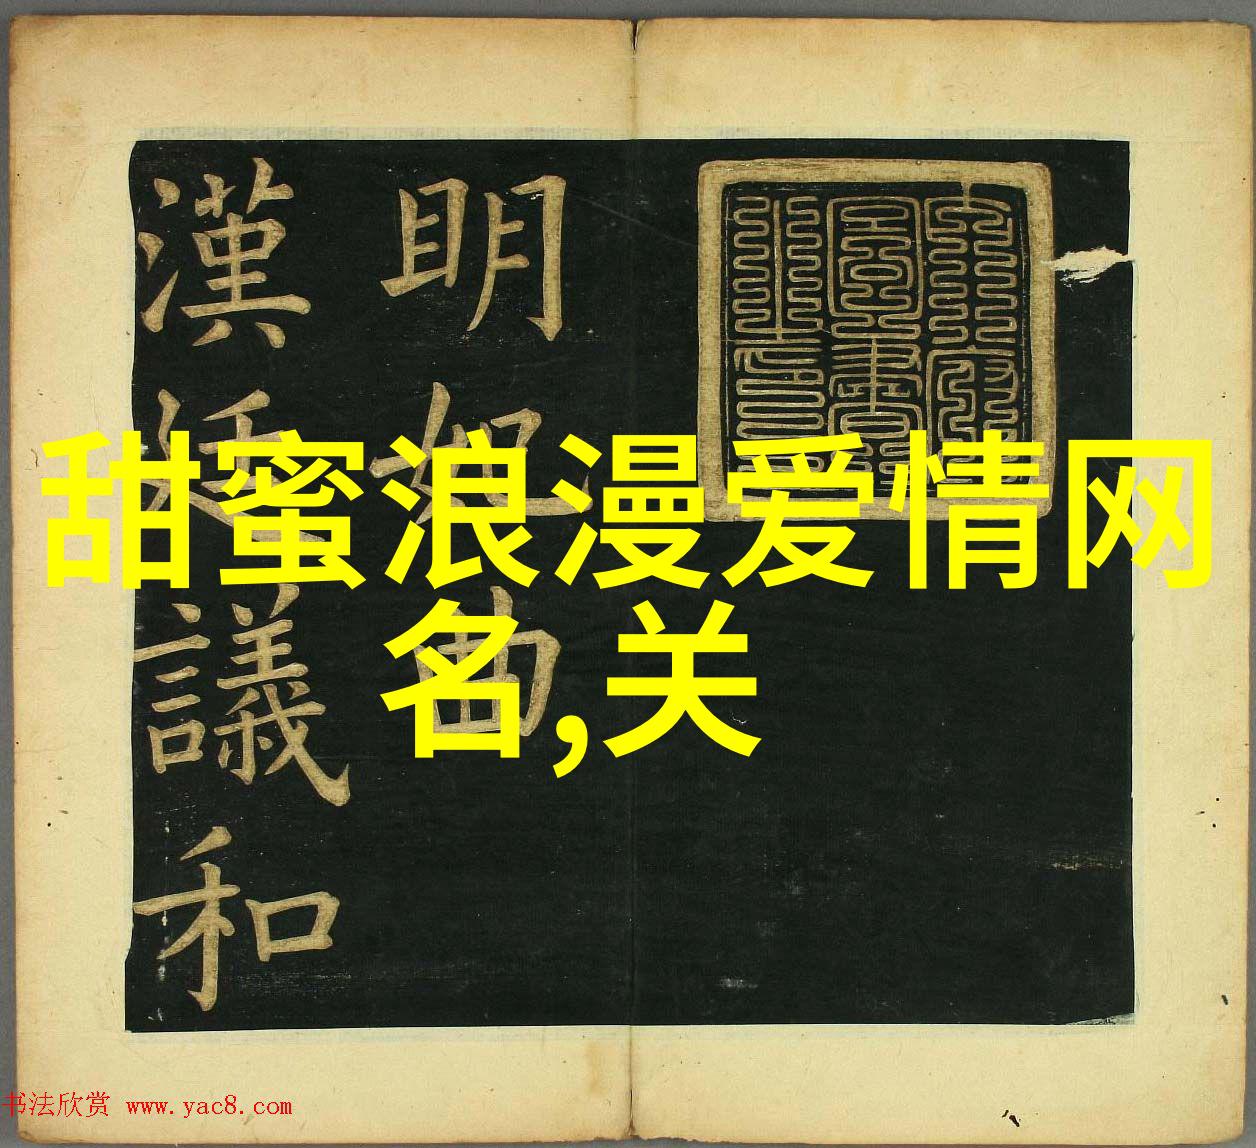 甜蜜浪漫爱情网
名,关
明妃曲
漢廷議和
书法欣赏 www.yac8.com